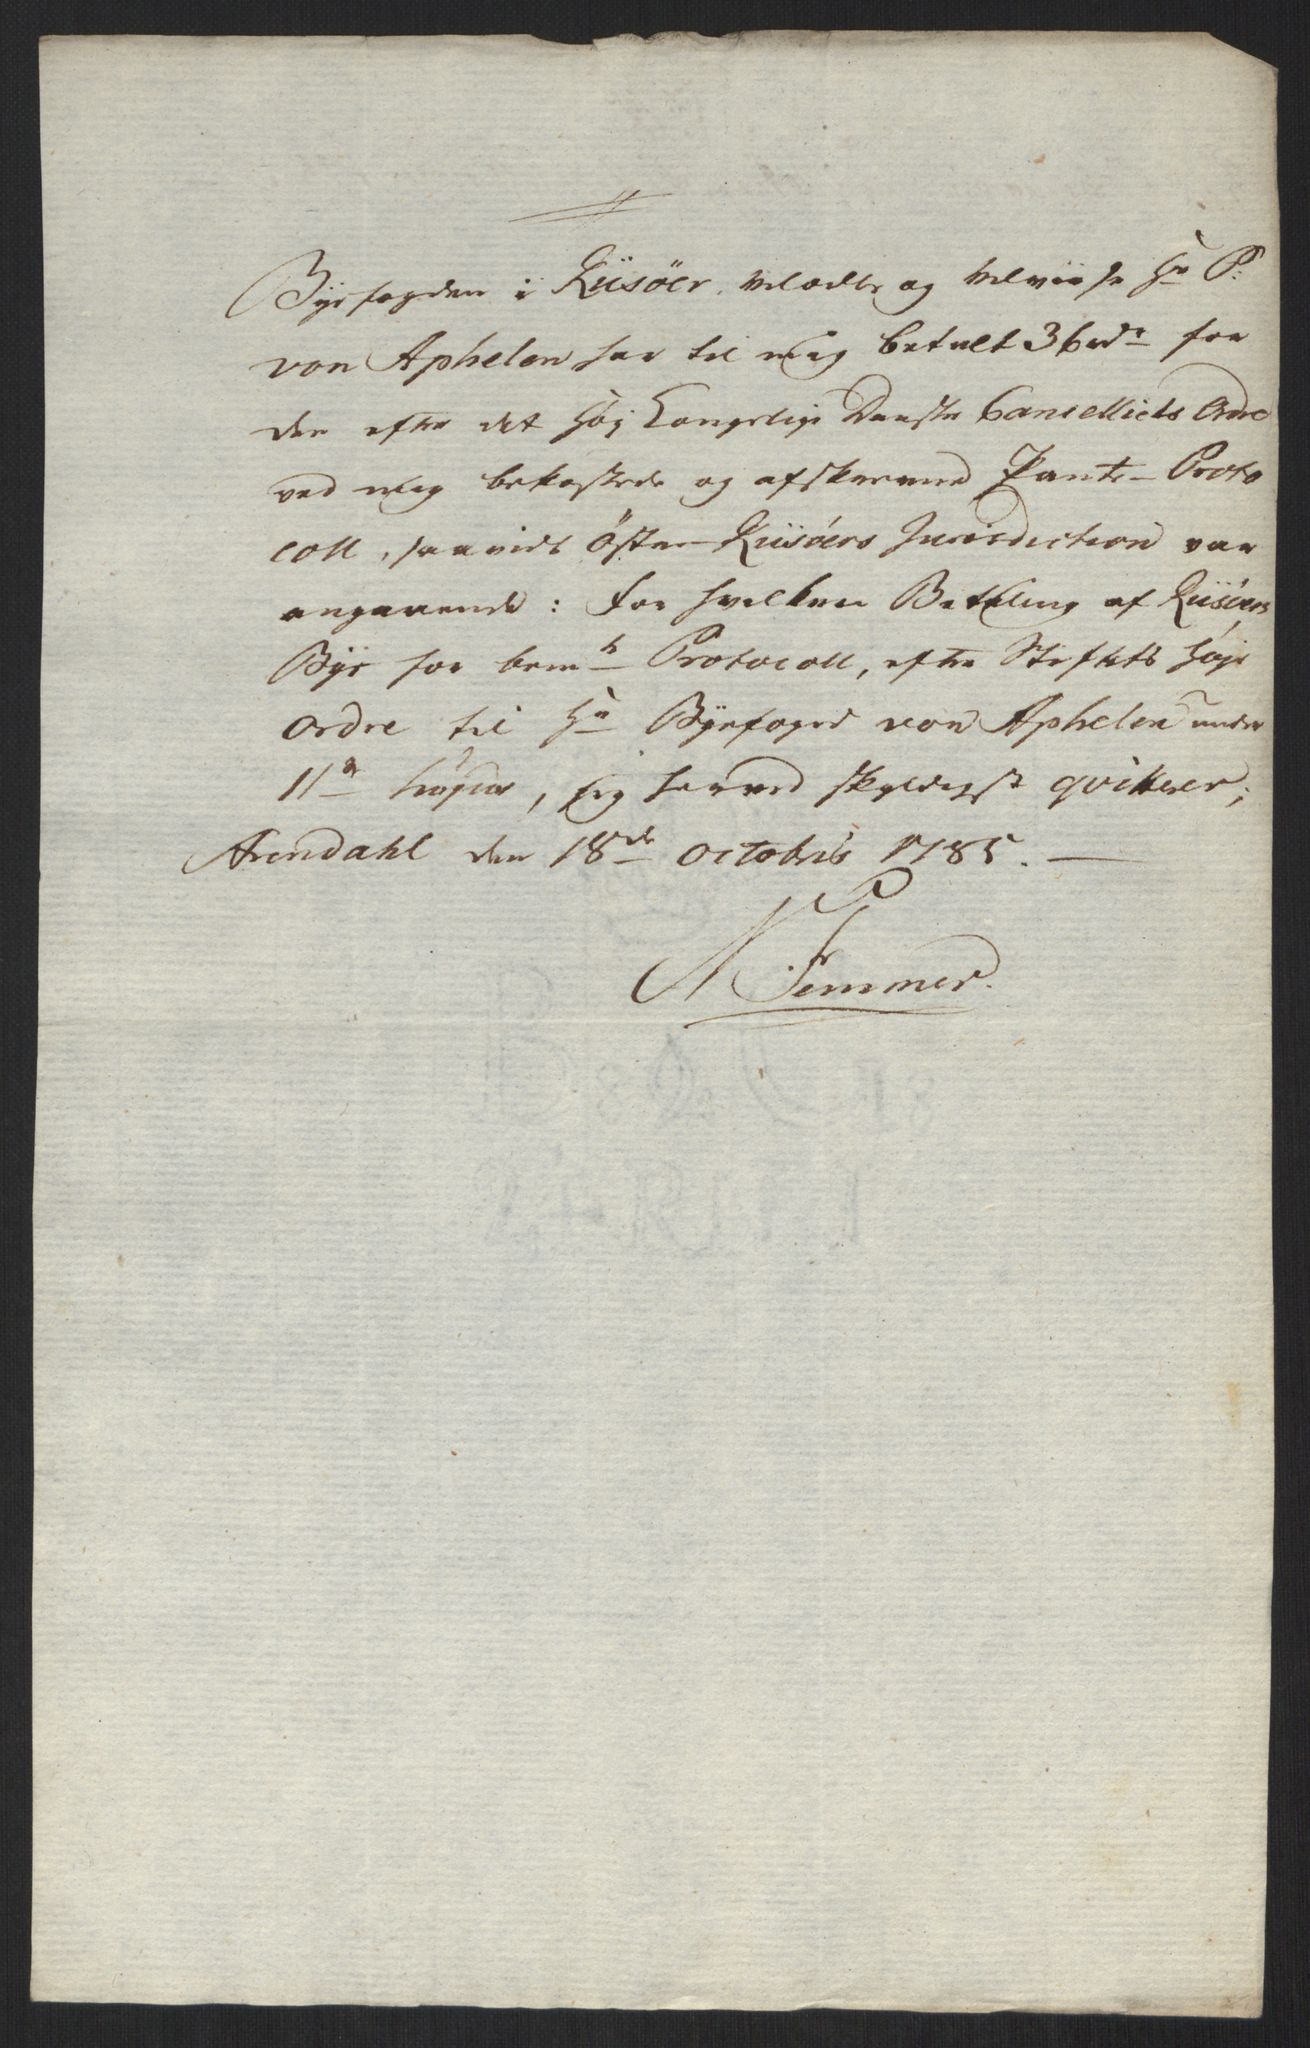 Byefogden i Riisöer, velædle og velviise Hr P:
von Aphelen har til mig betalt 36 rdr for
den efter det Høj Kongelige Danske Cancelliets Ordre
ved mig bekostede og afskrevne Pante-Proto
coll, saavidt Öster-Riisöers Jurisdiction var
angaaende: For hvilken Betaling af Riisöers
Bye for bemte Protocoll, efter Stiftets høje
ordre til Hr Byefoged von Aphelen under
11te hujus, jeg herved skyldigst qvitterer;
Arendahl den 18de octobris 1785. —
N Femmer.